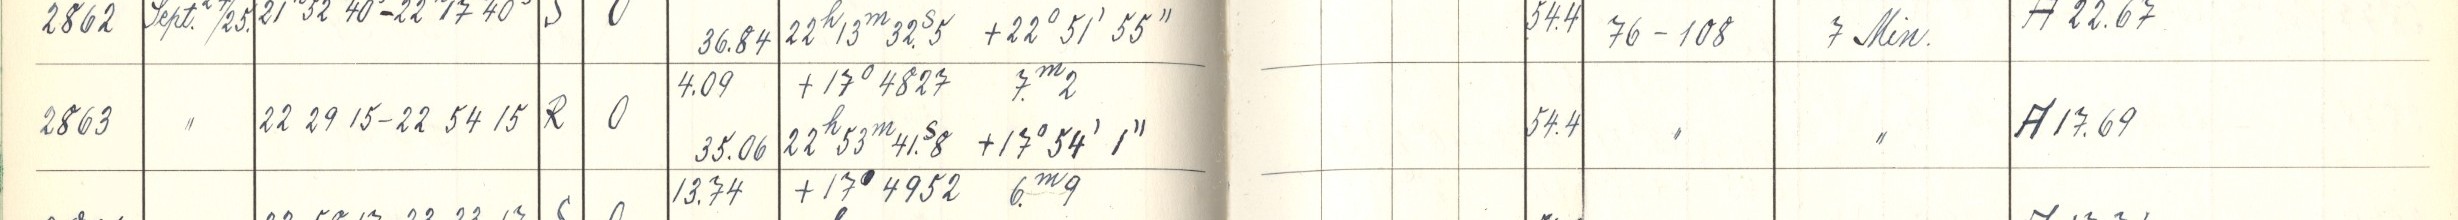 2862 Sept. 24/25. 21 52 40 - 22 17 40 S 0 36.84 22h 13m 32.s5 +22° 51' 55" 54.4 76 - 108 7 Min. A 22.67
4.09 +17° 4827 7.m2
2863 " 22 29 15 - 22 54 15 R 0 54.4 " " A 17.69
35.06 22h 53m 41.s8 +17° 54' 1"
13.74 +17° 4952 6.m9